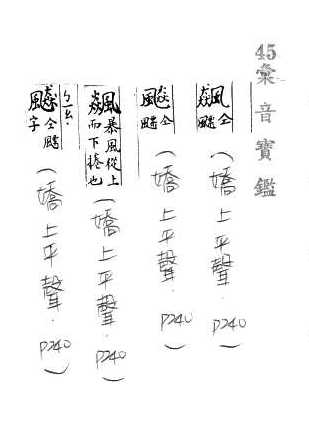 45彙音寶鑑
仝（嬌上平聲．P240）
仝（嬌上平聲．P240）
暴風從上而下捲也（嬌上平聲．P240）
仝字（嬌上平聲．P240）